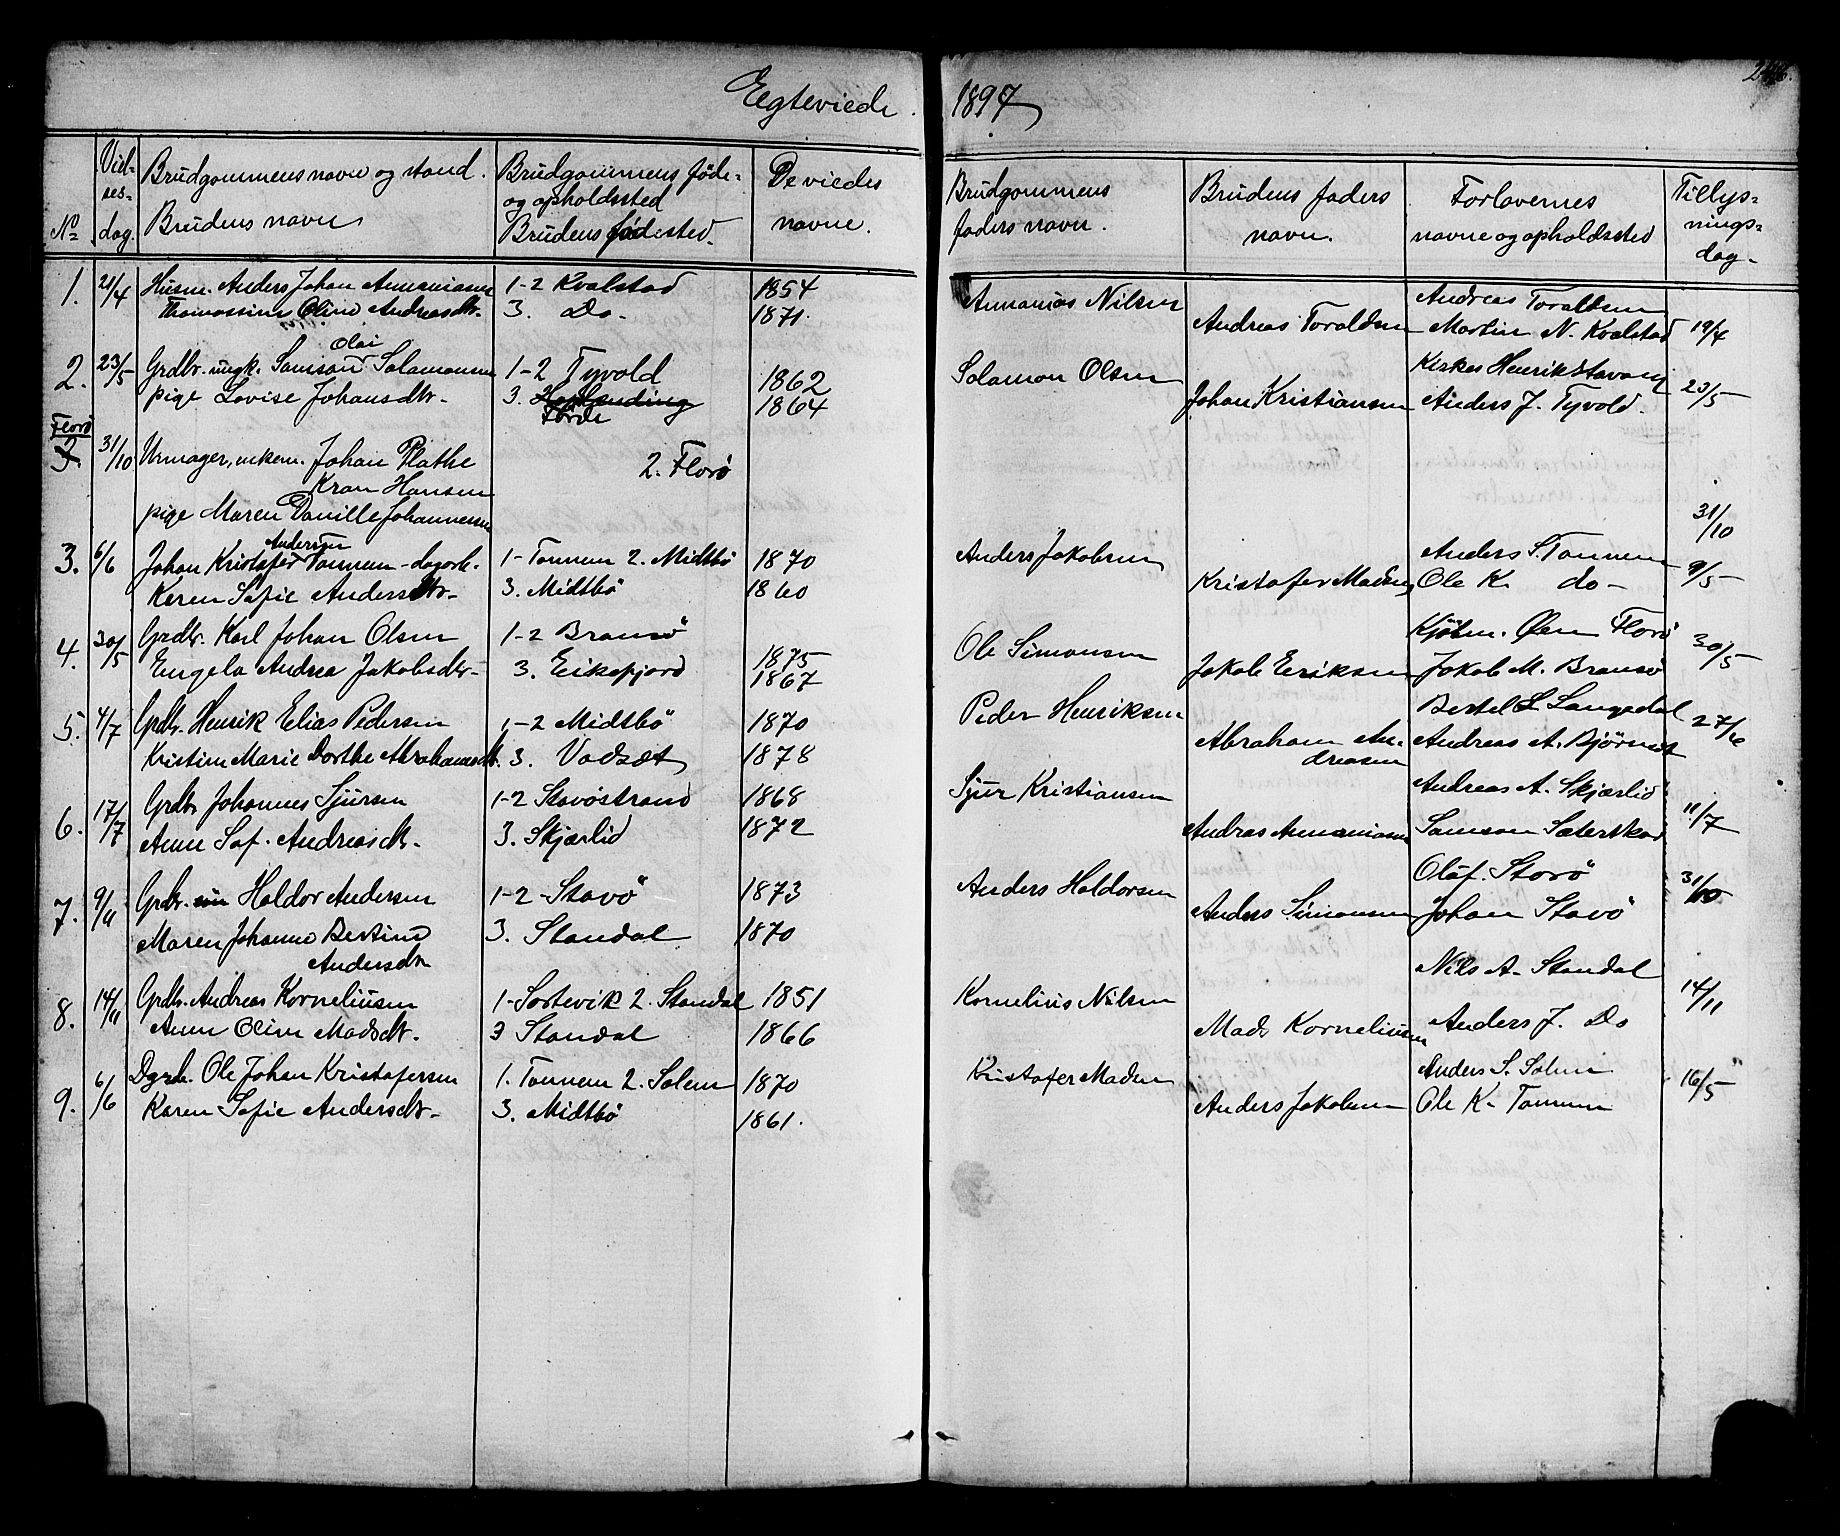 Egteviede. 1897
Nº
Viel-
ses-
dag.
Brudgommens navn og stand.
Brudens navn
Brudgommens føde-
og opholdssted
Brudens fødested.
De viedes
navne.
Brudgommens
faders navn.
Brudens faders
navn.
Forlovernes
navne og opholdssted
Tillys-
nings-
dag.
1. 21/4 Husm. Anders Johan Annaniasen 1-2 Kvalstad 1854 Annanias Nilsen Andreas Toraldsen
Thomassine Oline Andreasdtr. 3. Do. 1871. Andreas Toraldsen Martin N. Kvalstad 19/4
Olai
2. 23/5 Grdbr. ungk. Samson Salamonsen 1-2 Tyvold 1862 Solamon Olsen Kirkes Henrik Stavang
pige Lovise Johansdtr. 3. Førde 1864 Johan Kristiansen Anders J. Tyvold. 23/5
Florø
2. 31/10 Urmager, enkem. Johan Plathe 2. Florø
Kran Hansen
pige Maren Danille Johannesen 31/10
Andersen
3. 6/6 Johan Kristofer Tonnem - dagarb. 1- Tonnem 2. Midtbö 1870 Anders Jakobsen Anders S. Tonnem
Karen Sofie Andersdtr. 3. Midtbö 1860 Kristofer Madsen Ole K. do - 9/5
4. 30/5 Grdbr. Karl Johan Olsen 1-2 Bransö 1875 Ole Simonsen Kjöbm. Øen Florø
Engela Andrea Jakobsdtr - 3. Eikefjord 1867 Jakob Eriksen Jakob M. Bransö 30/5
5. 4/7 Grdbr. Henrik Elias Pedersen 1-2 Midtbö 1870 Peder Henriksen Bertel L Langedal 27/6
Kristine Marie Dorthe Abrahamsdtr. 3. Vadset 1878 Abraham An-
dreasen Andreas A. Bjørnset
6. 17/7 Grdbr Johannes Sjursen 1-2 Stavöstrand 1868 Sjur Kristiansen Andreas A. Skjærlid
Anne Sof. Andreasdtr. 3. Skjærlid 1872 Andreas Annaniasen Samson Sæterskar 11/7
7. 9/11 Grdbr. Haldor Andersen 1-2 - Stavö 1873 Anders Haldorsen Oluf Storö 31/10
Maren Johanne Bertine 3. Standal 1870 Anders Simonsen Johan Stavö
Andersdtr
8. 14/11 Grdbr. Andreas Korneliusen 1- Sortevik 2. Standal 1851 Kornelius Nilsen Nils A. Standal
Anne Oline Madsdtr. 3 Standal 1866 Mads Korneliusen Anders J. Do 14/11
9. 6/6 Dgrb. Ole Johan Kristofersen 1. Tonnem 2. Solem 1870 Kristofer Madsen Anders S. Solem
Karen Sofie Andersdtr - 3. Midtbö 1861. Anders Jakobsen Ole K. Tonnem 16/5